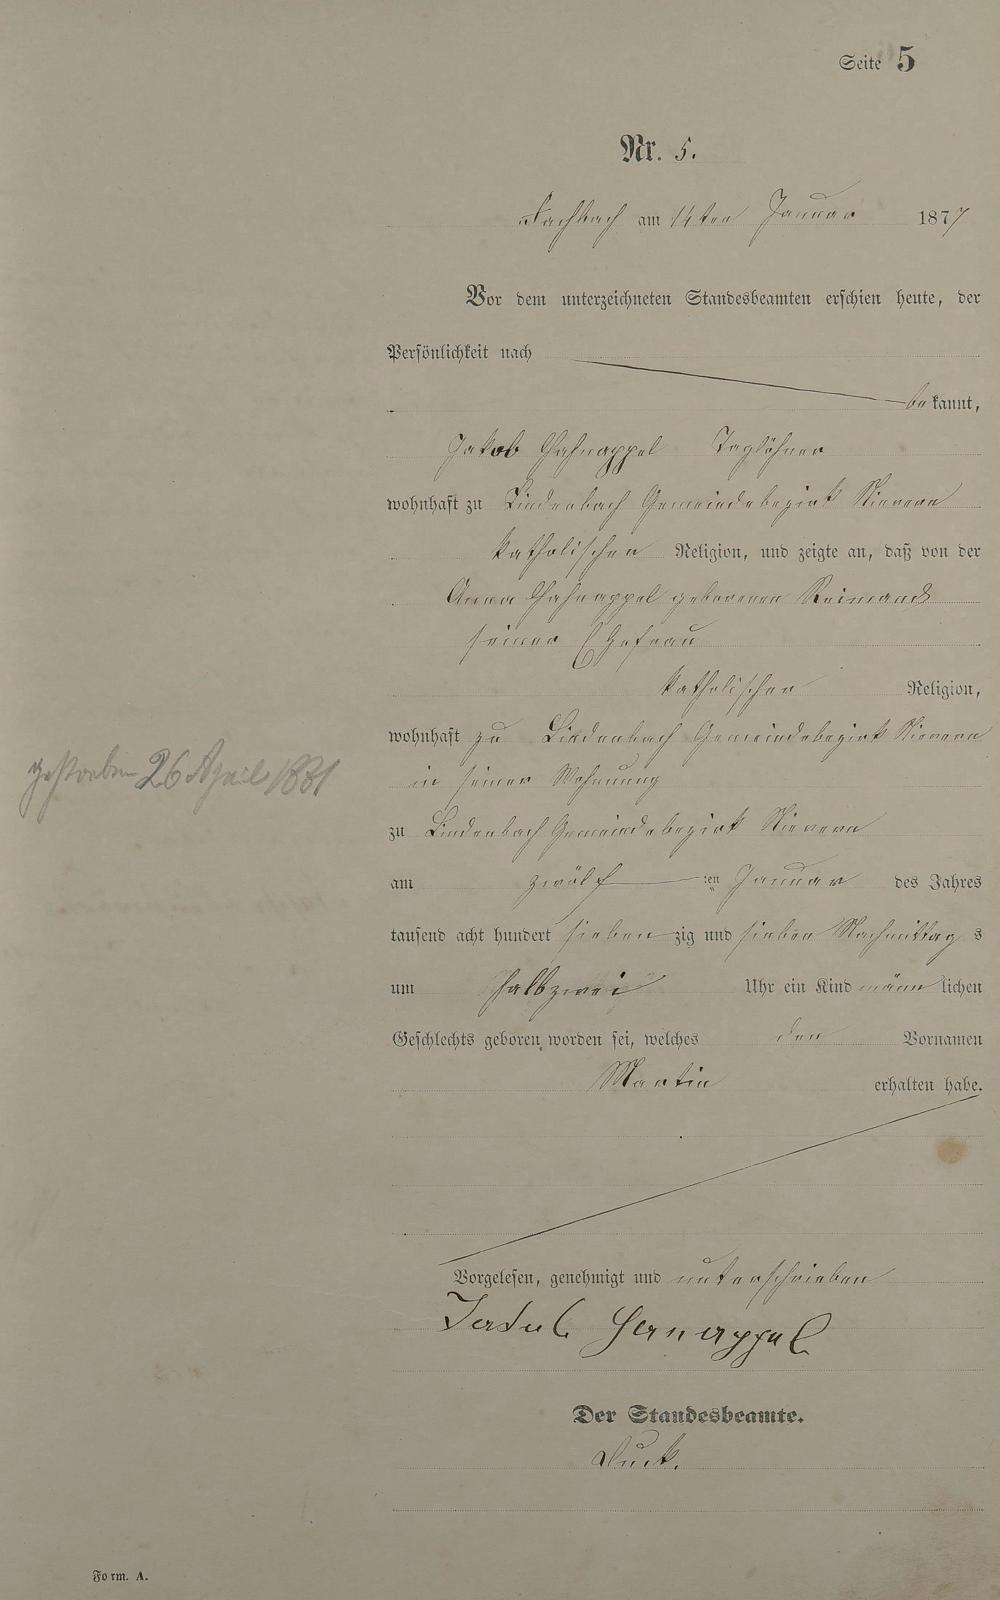 Seite 5
Nr. 5.
Fachbach am 14ten Januar 1877
Vor dem unterzeichneten Standesbeamten erschien heute, der
Persönlichkeit nach
bekannt,
Jakob Hahnappel Taglöhner
wohnhaft zu Lindenbach Gemeindebezirk Nievern
katholischen Religion, und zeigte an, daß von der
Anna Hahnappel geborenen Reimand
seiner Ehefrau
katholischer Religion,
wohnhaft zu Lindenbach Gemeindebezirk Nievern
in seiner Wohnung
gestorben 26 April 1881
zu Lindenbach Gemeindebezirk Nievern
am zwölf ten Januar des Jahres
tausend acht hundert siebenzig und sieben Nachmittags
um halbzwei Uhr ein Kind männlichen
Geschlechts geboren worden sei, welches den Vornamen
Martin erhalten habe.
Vorgelesen, genehmigt und unterschrieben
Jakob Hanappel
Der Standesbeamte.
Form. A.